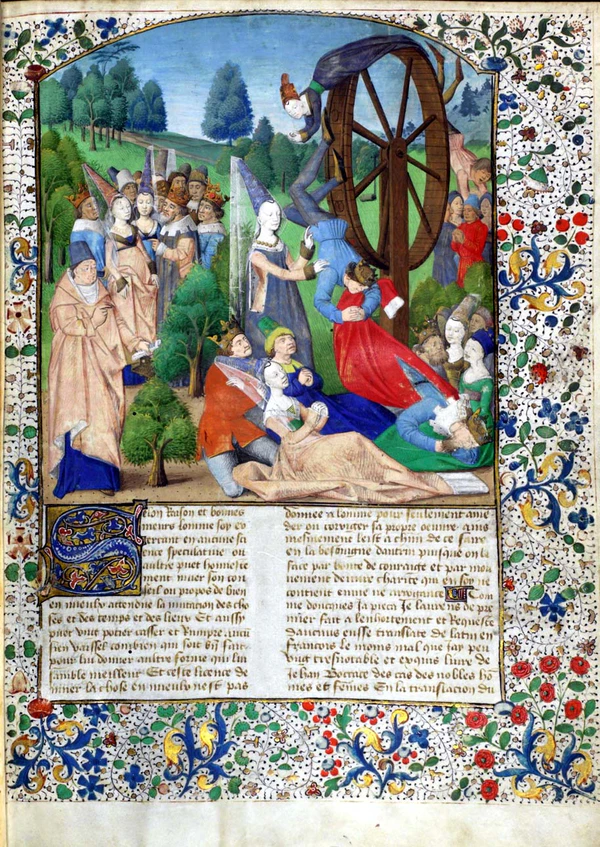 Selon Raison et bonnes
meurs lomme soy ex
cercant en aucune sa
ence speculatiue ou
autre puet honneste
ment muer son con
seil ou propos de bien
en mieulx attendue la mutation des cho
ses et des temps et des lieux Et aussi
puet ung potier casser et Rompre aucu
sien vaissel combien quil soit bn fait
pour lui donner autre forme qui lui
samble meilleur Et ceste licence de
muer la chose en mieulx nest pas
donnee a lomme pour seulement ame
der ou corriger sa propre oeuure ains
mesmement leist a chun de ce faire
en la besoingne dautrui puisque on la
face par bonte de courage et par mou
uement de vraie charite qui en soy ne
contient enuie ne arrogance Com
me doncques Ja pieca Je laurens de pre
mier fait a lenhortement et Requeste
daucuns eusse translate de latin en
francois le moins mal que Jay peu
ung tresnotable et exquis liure de
Jehan Boccace des cas des nobles ho
mes et femes En la translacion du